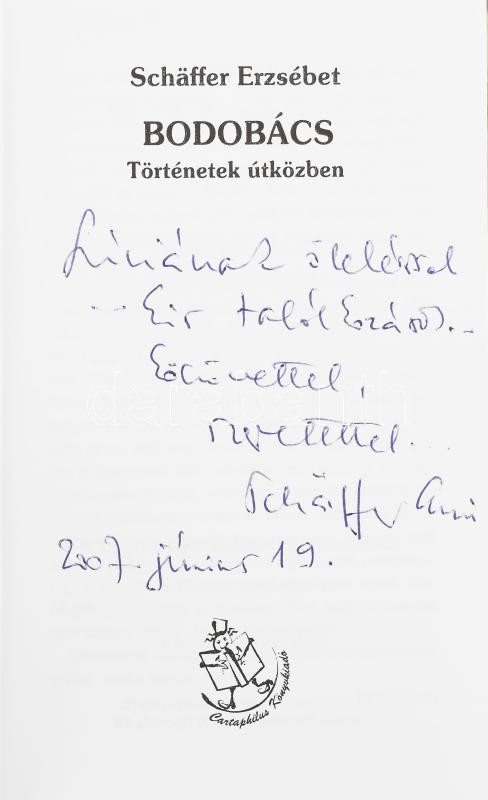 Schäffer Erzsébet
BODOBÁCS
Történetek útközben
Líviának öleléssel
... Kis találkozásó...
Köszönettel,
darabanth
szeretettel...
Schäffer
2007. június 19.
Cartaphilus Könyvkiadó